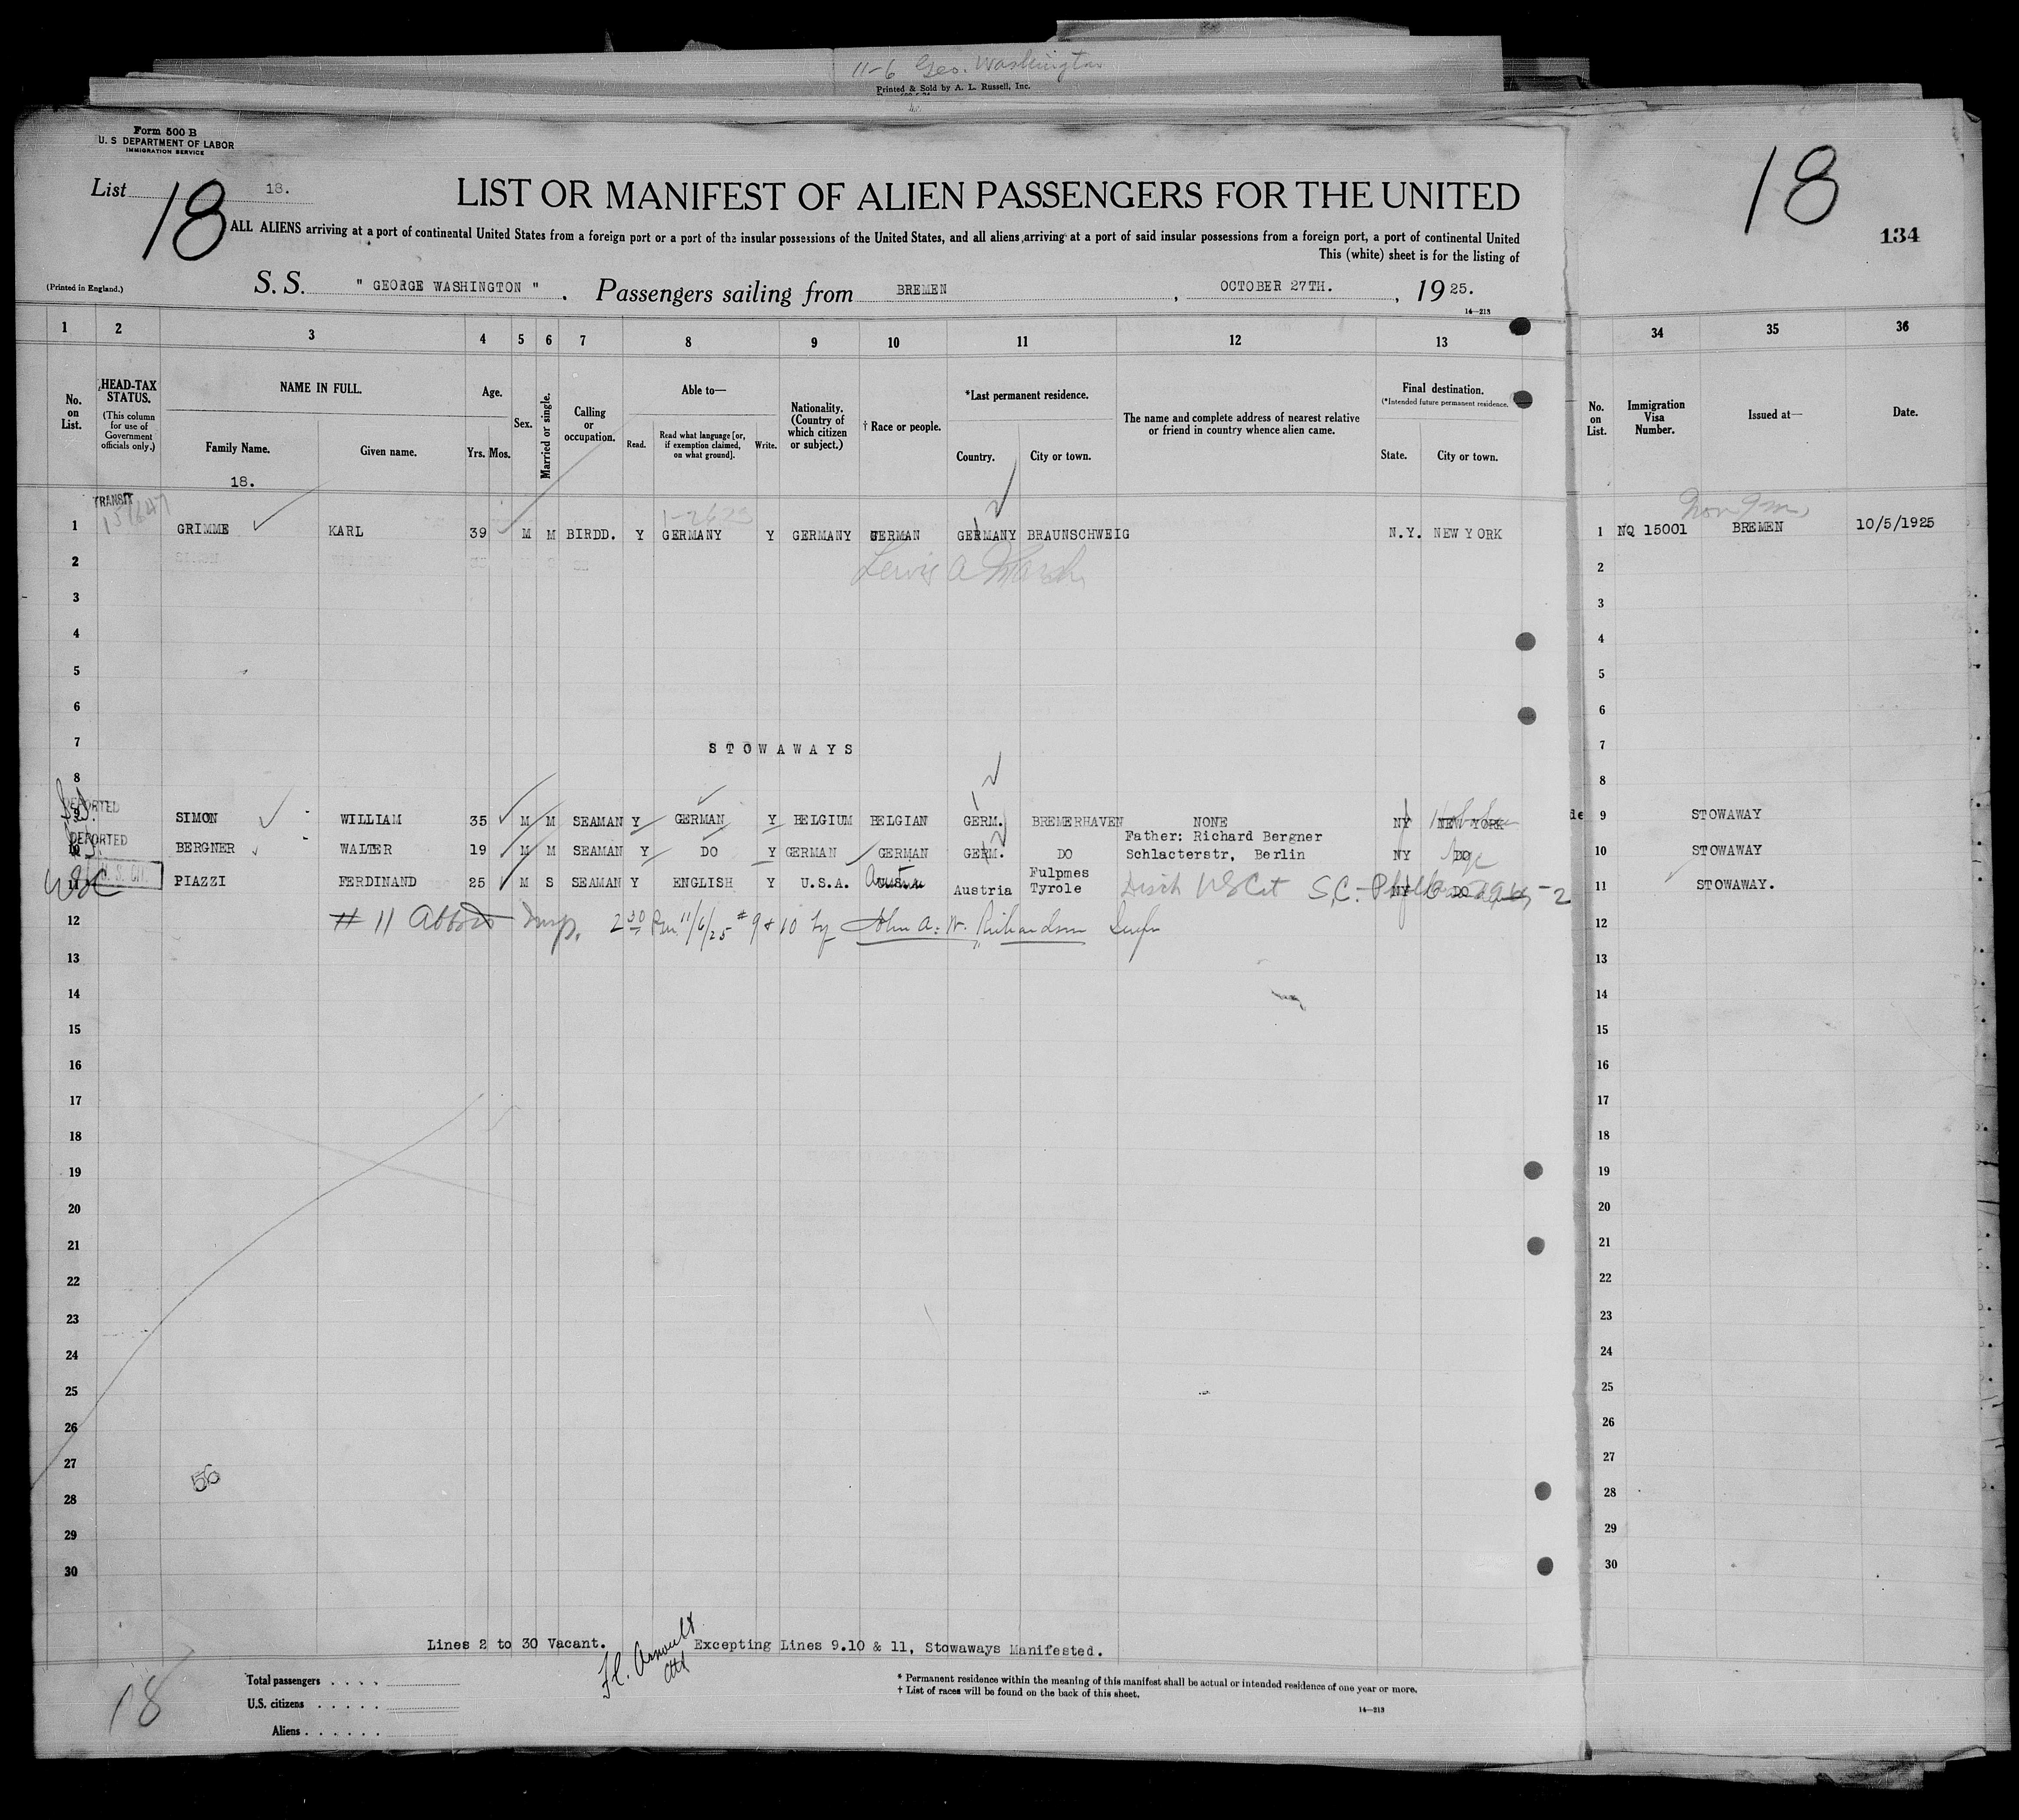 11-6 Geo. Washington
Printed & Sold by A. L. Russell, Inc.
Form 500 B
U. S DEPARTMENT OF LABOR
IMMIGRATION SERVICE
List 18.
18
LIST OR MANIFEST OF ALIEN PASSENGERS FOR THE UNITED
18
134
ALL ALIENS arriving at a port of continental United States from a foreign port or a port of the insular possessions of the United States, and all aliens arriving at a port of said insular possessions from a foreign port, a port of continental United
This (white) sheet is for the listing of
(Printed in England.)
S. S. " GEORGE WASHINGTON " . Passengers sailing from BREMEN , OCTOBER 27TH. , 1925.
14-213
1 2 3 4 5 6 7 8 9 10 11 12 13 34 35 36
No. on List.
HEAD-TAX STATUS.
(This column for use of Government officials only.)
NAME IN FULL.
Family Name.
Given name.
18.
Age.
Yrs. Mos.
Sex.
Married or single.
Calling or occupation.
Able to—
Read.
Read what language [or, if exemption claimed, on what ground].
Write.
Nationality. (Country of which citizen or subject.)
† Race or people.
*Last permanent residence.
Country.
City or town.
The name and complete address of nearest relative or friend in country whence alien came.
Final destination.
(*Intended future permanent residence.
State.
City or town.
No. on List.
Immigration Visa Number.
Issued at—
Date.
TRANSIT
1 GRIMME KARL 39 M M BIRDD. Y GERMANY Y GERMANY GERMAN GERMANY BRAUNSCHWEIG N.Y. NEW YORK 1 NQ 15001 BREMEN 10/5/1925
2 Lewis A 2
3 3
4 4
5 5
6 6
7 STOWAWAYS 7
8 8
DEPORTED
9 SIMON WILLIAM 35 M M SEAMAN Y GERMAN Y BELGIUM BELGIAN GERM. BREMERHAVEN NONE NY NEW YORK 9 STOWAWAY
DEPORTED
Father: Richard Bergner
10 BERGNER WALTER 19 M M SEAMAN Y DO Y GERMAN GERMAN GERM. DO Schlacterstr, Berlin NY DO 10 STOWAWAY
USC
U. S. CIT.
11 PIAZZI FERDINAND 25 M S SEAMAN Y ENGLISH Y U.S.A. Austria Fulpmes Tyrole NY DO 11 STOWAWAY.
12 # 11 2 30 11/6/25 # 9 & 10 by John A. W. Richardson 12
13 13
14 14
15 15
16 16
17 17
18 18
19 19
20 20
21 21
22 22
23 23
24 24
25 25
26 26
27 27
56
28 28
29 29
30 30
Lines 2 to 30 Vacant. Excepting Lines 9.10 & 11, Stowaways Manifested.
Total passengers . . . .
U.S. citizens . . . . .
Aliens . . . . . .
18
* Permanent residence within the meaning of this manifest shall be actual or intended residence of one year or more.
† List of races will be found on the back of this sheet.
14-213